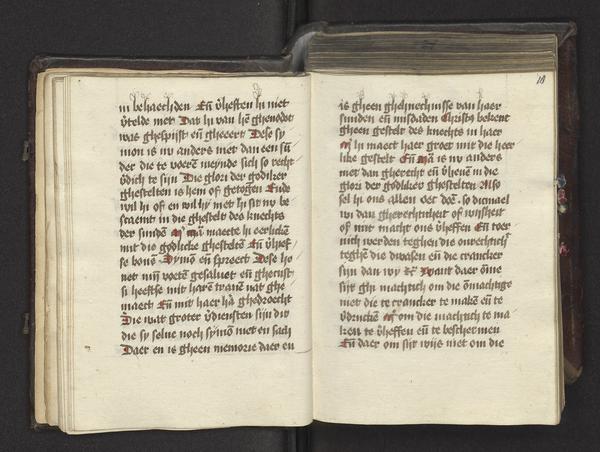 in behaechden Eñ v̄hesten hi niet
v̄telde met Dat hi van hē ghenodet
was ghespijst eñ gheeert Dese sy
mon is nv anders niet dan een sū
der die te voerē meynde sich so recht
v̄dich te sijn Die glori der godliker
ghestelten is hem of getoghen Ende
wil hi of en wil hy niet hi sit nv be
scaemt in die ghestelt des knechts
der sundē maecte hi eerlickē
mit die godlicke ghesteltē Eñ v̄hef
se bouē Symō eñ spreect Dese
net mijn voetē gesaluet eñ
si heeftse mit harē tranē nat ghe
maect Eñ mit haer ghedroecht
Die wat groter v̄diensten sijn dit
die sy selue noch symō niet en sach
Daer en is gheen memorie daer en
18
is gheen ghedinckenisse van haer
sunden eñ misdaden Christꝰ bekent
gheen gestelt des knechts in haer
hi maect haer groet mit die heer
like gestelt Eñ is nv anders
niet dan gherecht eñ v̄heuē in die
glori der godliker ghestelten Also
sel hi ons allen oec doē so dicmael
wi dan gherechticheit of wijsheit
of mit macht ons v̄heffen Eñ toer
nich werden teghen die onrechtich
teghē die dwasen eñ die crancker
sijn dan wy Want daer ōme
sijt ghi machtich om die ōmachtige
niet die te crancker te makē eñ te
v̄druckē om die machtich te ma
ken te v̄heffen eñ te beschermen
Eñ daer om sijt wijs niet om die